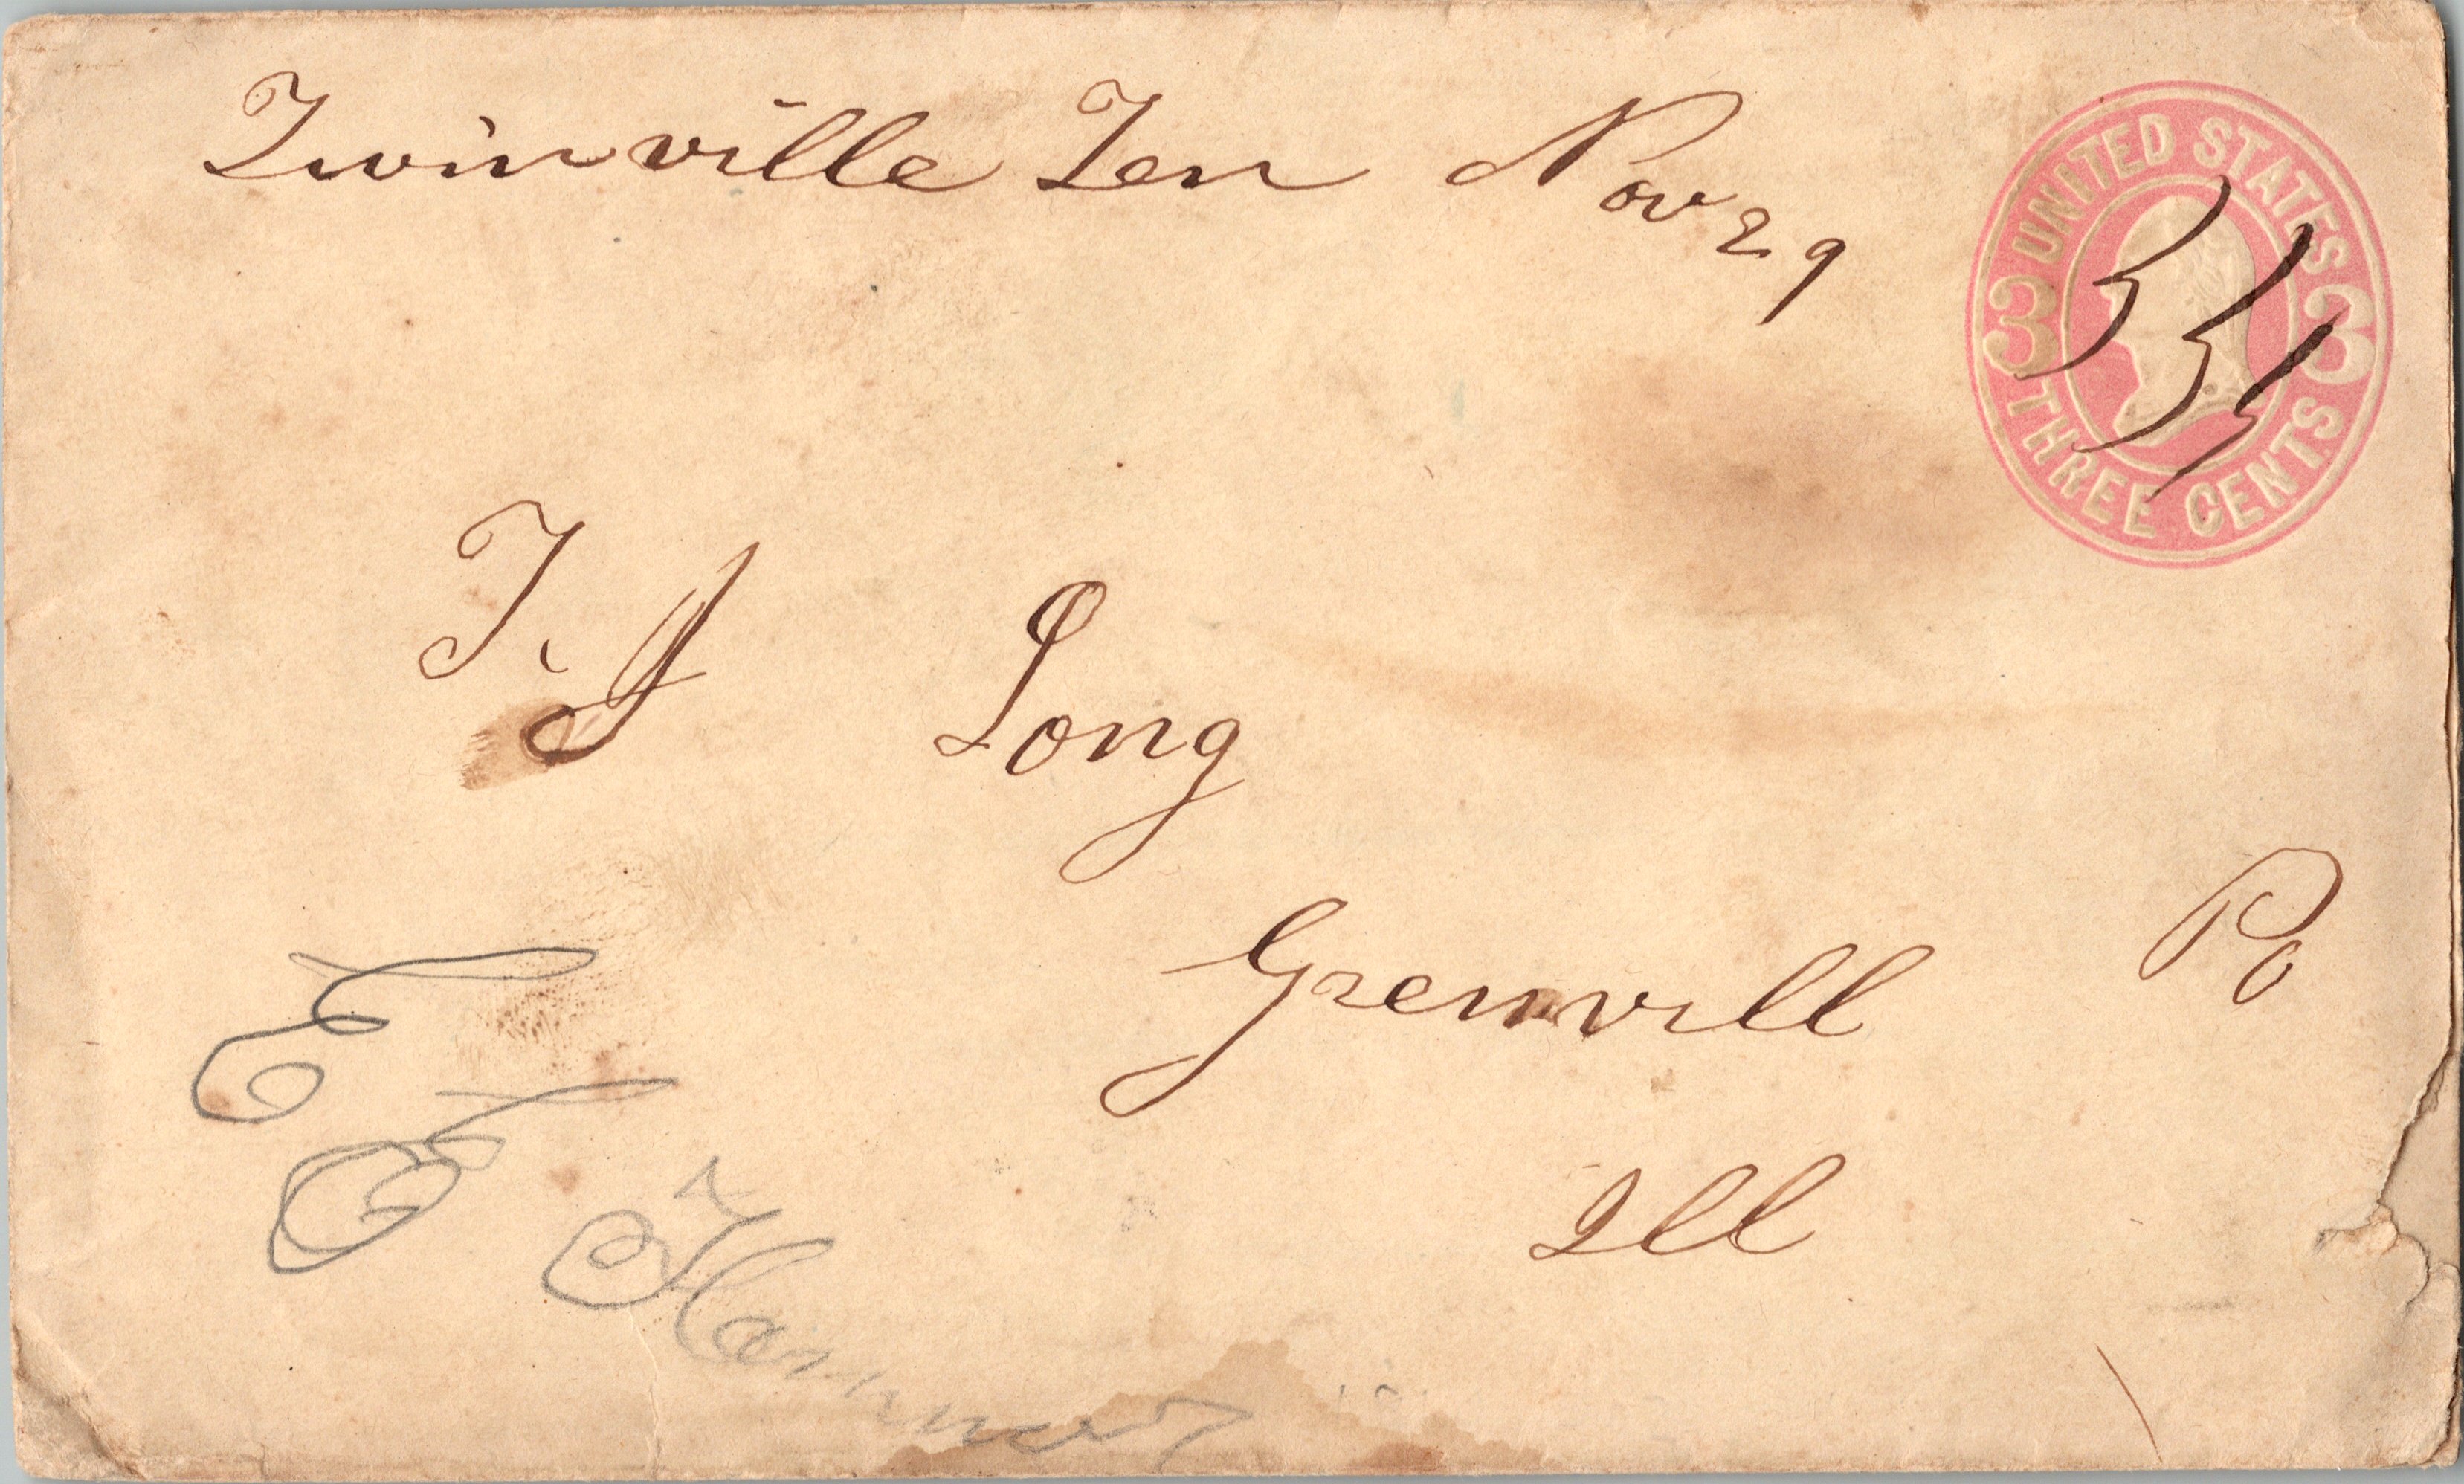 Twinville Ten Nov 29
UNITED STATES
3 3
THREE CENTS
T. A Long
Grenvill Po
Ill